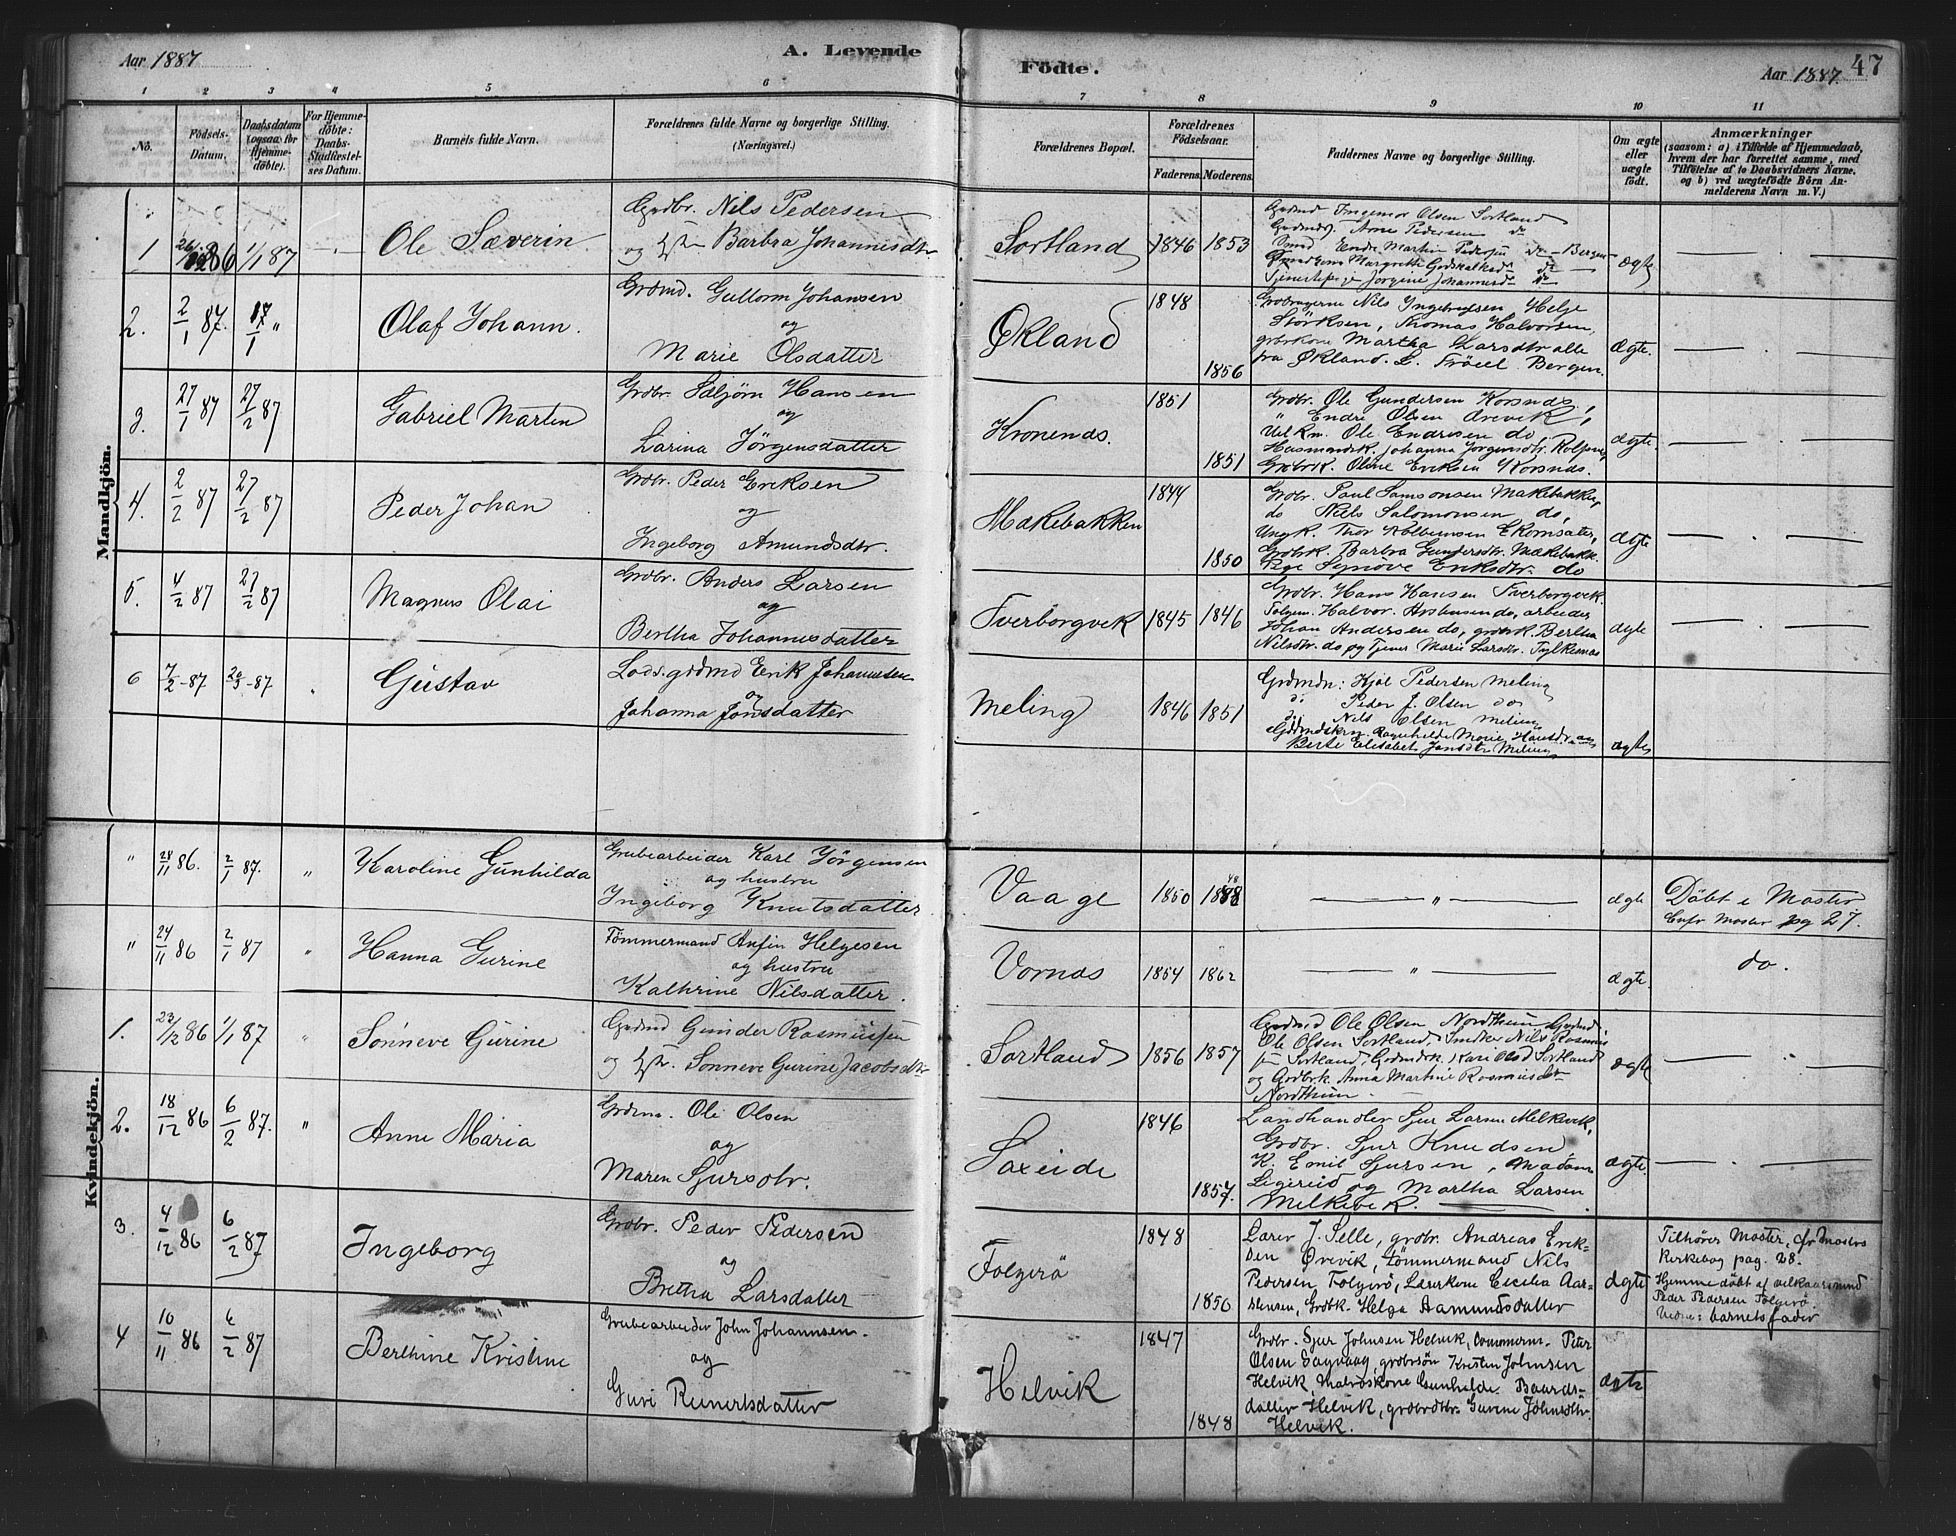 Aar 1887
A. Levende
Födte.
Aar 1887.
47
1 2 3 4 5 6 7 8 9 10 11
No.
Födsels-
Datum.
Daabsdatum
(ogsaa for
Hjemme-
döbte).
For Hjemme-
döbte:
Daabs-
Stadfæstel-
ses Datum.
Barnets fulde Navn.
Forældrenes fulde Navne og borgerlige Stilling.
(Næringsvei.)
Forældrenes Bopæl.
Forældrenes
Födselsaar.
Faderens.
Moderens.
Faddernes Navne og borgerlige Stilling.
Om ægte
eller
uægte
födt.
Anmærkninger
(saasom: a) i Tilfælde af Hjemmedaab,
hvem der har forrettet samme, med
Tilföielse af to Daabsvidners Navne.
og b) ved uægtefödte Börn An-
melderens Navn m. V.)
Mandkjön.
1 86 1/1 87 Ole Sæverin
Grdbr. Nils Pedersen
og Barbra Johannisdtr
Sortland 1846 1853
Grdmd Ingemor Olsen Sortland
Arne Pedersen do
Smed Endre Martin Pedersen do Bergen
Margrethe Godskalksd do
Jorgine Johannesd do
ægte
2. 2/1 87. 17/1 " Olaf Johann.
Grdmd. Guttorm Johansen
og
Marie Olsdatter
Økland 1848
1856
Grdbrugerne Nils Ingebrigtsen Helje
Störksen, Thomas Halvorsen,
grbrkone Martha Larsdtr alle
fra Økland. L. Fröell Bergen.
ægte.
3. 27/1 87 27/2 87 Gabriel Marten
Grdbr. Hansen
og
Larina Jörgensdatter
Kronenæs. 1851
1851
Grdbr. Ole Gundersen Korsnæs,
" Endre Olsen Ørevik,
Ole Endresen do,
Husmandsk. Johanna Jörgensdtr.
Grdbrk. Oline Eriksen Korsnæs.
ægte.
4. 2/2 87 27/2 87 Peder Johan
Grdbr. Peder Eriksen
og
Ingeborg Amundsdtr.
Mækebakken 1844
1850
Grdbr. Paul Samsonsen Mækebakken,
do Niels Salomonsen do,
Ungk. Thor
Grdbrk. Barbra Gundersdtr. Mækebakk.
Pige Synöve Eriksdtr. do
ægte
5. 4/2 87 27/2 87 Magnus Olai
Grdbr. Anders Larsen
og
Bertha Johannesdatter
Tverborgvik 1845 1846
Grdbr. Hans Hansen Tverborgvik.
Halvor do, arbeider
Johan Andersen do, grdbrk. Bertha
Nilsdtr. do og Tjener Marie Larsdtr.
ægte
6 7/2-87 20/3-87 " Gustav
Lods. grdmd Erik Johannesen
og
Johanna Jonsdatter
Meling 1846 1851
Grdmdn: Hjøl Pedersen Meling
do Peder J. Olsen do
do Nils Olsen Meling
Ragnhilde Marie Hansdr og
Berte Elisabet Jansdtr Meling
ægte
Kvindekjön.
" 28/11 86. 2/1 87. " Karoline Gunhilda
Grubearbeider Karl Jörgensen
og hustru
Ingeborg Knutsdatter
Vaage 1850 1848
"
ægte
Döbt i Moster
Cnfr Moster pg 27.
" 24/11 86 2/1 87 " Hanna Gurine
Tömmermand Anfin Helgesen
og hustru
Kathrine Nilsdatter.
Vornæs 1854 1862
"
ægte.
do.
1. 23/12 86 1/1 87 " Sönneve Gurine
Grdmd Gunder Rasmussen
og Sönneve Gurine Jacobsdtr
Sortland 1856 1857
Grdmd Ole Olsen Nordthun Grdmd.
Ole Olsen Sortland, Nils Rasmus-
sen Sortland, Grdmdk. Kari Olsd Sortland
og Grdbrk. Anna Martine Rasmusdtr
Nordthun.
ægte
2. 18/12 86 6/2 87. " Anne Maria
Grdmd. Ole Olsen
og
Maren Sjursdtr.
Saxeide 1846
1857.
Landhandler Sjur Larsen Melkevik,
Grdbr. Sjur Knudsen
K. Emil Sjursen, Madam
og Martha Larsen
Melkevik.
ægte.
3. 4/12 86 6/2 87 Ingeborg
Grdbr. Peder Pedersen
og
Bretha Larsdatter
Folgerö 1848
1850
Lærer J. Selle, grdbr. Andreas Erik-
sen Ørevik, tömmermand Nils
Pedersen Folgerö, Lærerkone Cecilia Aar-
stensen, Grdbk. Helga Aamundsdatter
ægte
Tilhörer Moster, cfr Mosters
Kirkebog pag. 28.
Hjemmedöbt af vilkaarsmand
Peder Pedersen Folgerö.
Vidne: barnets fader
4 10/11 86 6/2 87 Berthine Kristine
Grubearbeider John Johannsen.
og
Guri Reinertsdatter
Helvik 1847
1848
Grdbr. Sjur Johnsen Helvik, tömmerm. Peter
Olsen Sagvaag, grdbrsön Kristen Johnsen
Helvik, Gunhilde Baards-
datter Helvik, grdbrdtr. Gurine Johnsdtr.
Helvik.
ægte